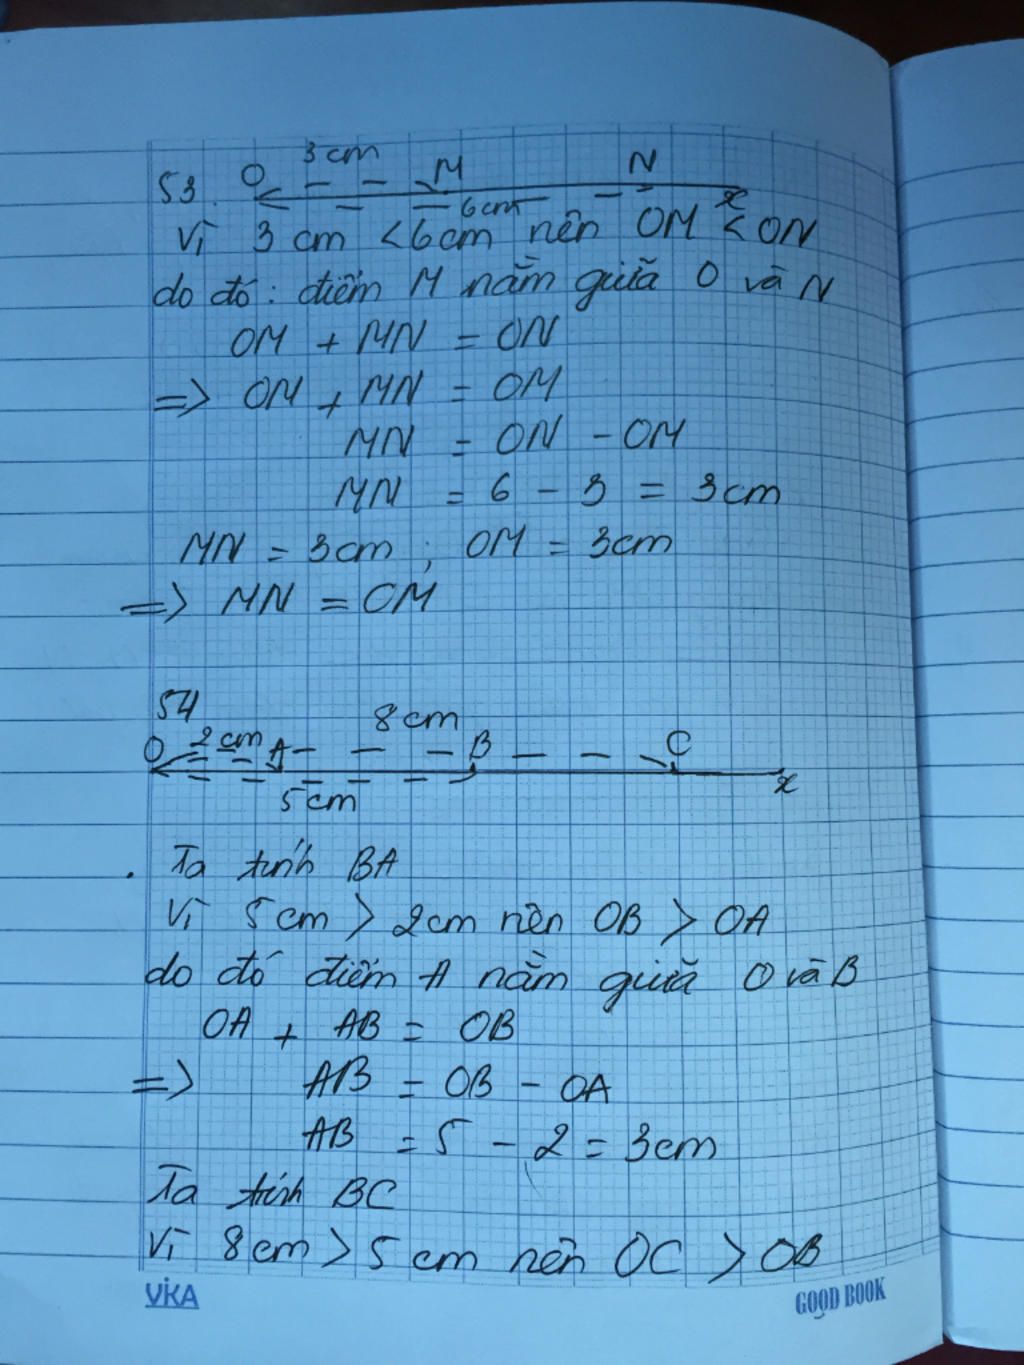 53.
O 3 cm M N
6cm x
Vì 3 cm < 6cm nên OM < ON
do đó : điểm M nằm giữa O và N
OM + MN = ON
=> OM + MN = OM
MN = ON - OM
MN = 6 - 3 = 3cm
MN = 3cm ; OM = 3cm
=> MN = OM
54
8cm
O 2 cm A B C
5cm x
. Ta tính BA
Vì 5cm > 2cm nên OB > OA
do đó điểm A nằm giữa O và B
OA + AB = OB
=> AB = OB - OA
AB = 5 - 2 = 3cm
Ta tính BC
Vì 8cm > 5cm nên OC > OB
VIKA GOOD BOOK